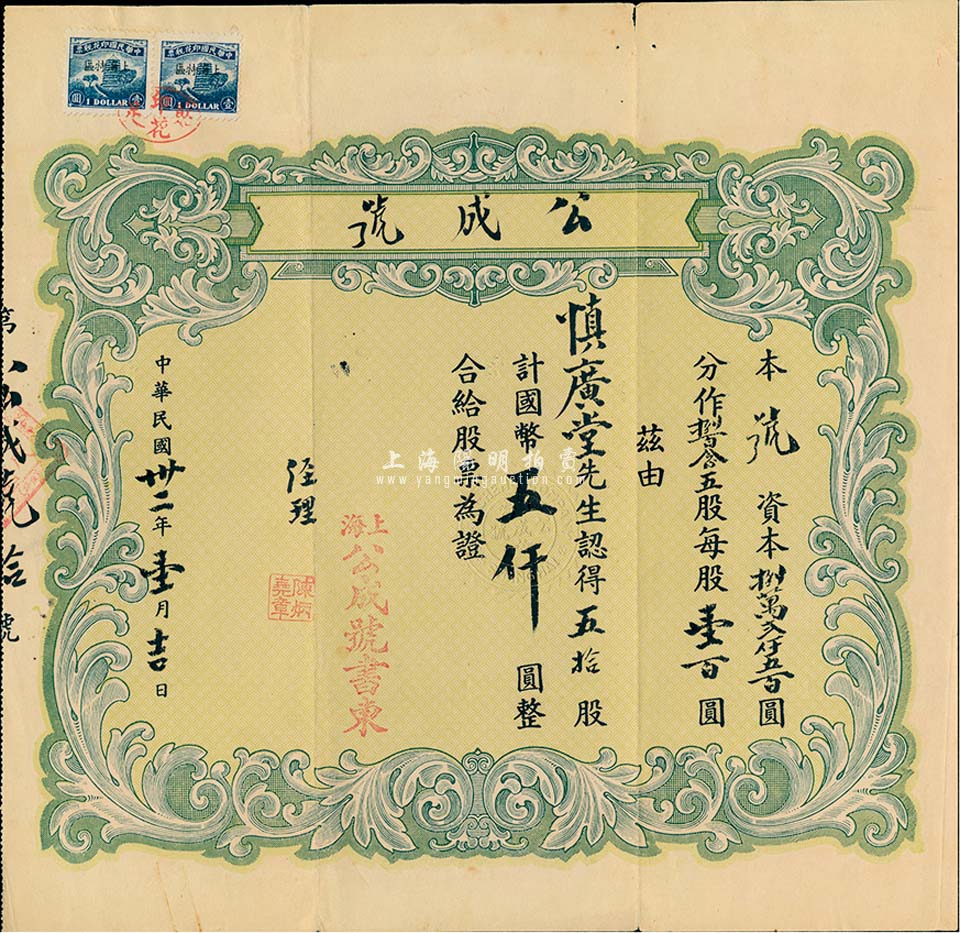 中華民國印花稅票
上海特區
壹圓
1 DOLLAR
中華民國印花稅票
上海特區
壹圓
1 DOLLAR
公成號
本號資本捌萬弍仟五百圓
分作捌百念五股每股壹百圓
茲由
慎廣堂先生認得五拾股
計國幣五仟圓整
合給股票為證
經理
上海
公成號書柬
陳炳堯章
中華民國卅二年壹月吉日
第公成號拾號
上海陽明拍賣
www.yangmingauction.com